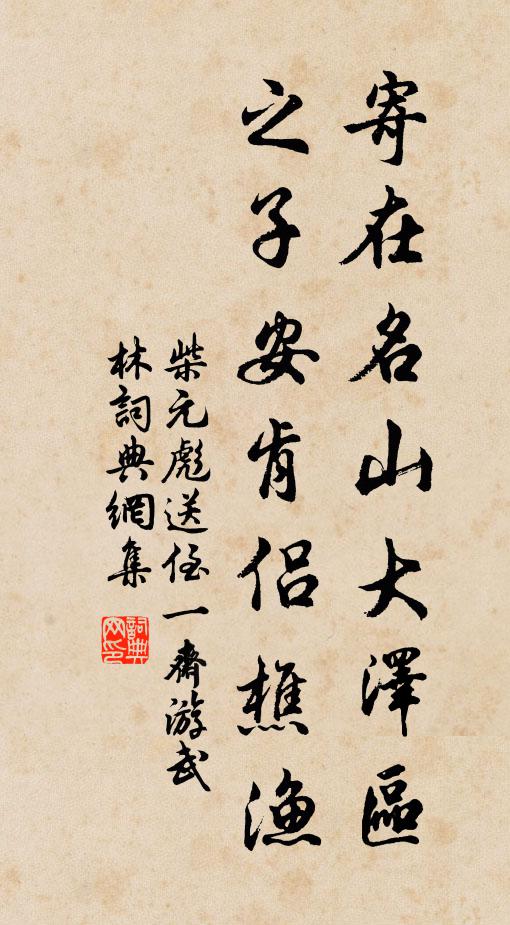 寄在名山大澤區
之子安肯侶樵漁
柴元彪送侄一齋游武
林詞典網集
詞典
网印